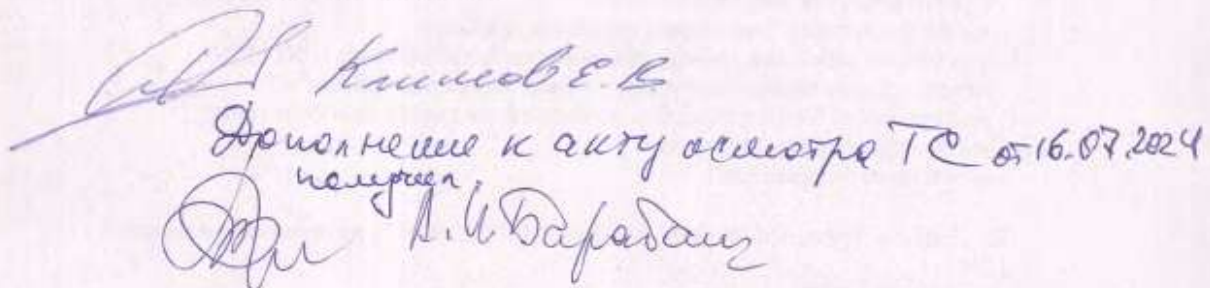 Климов Е.В.
Дополнение к акту осмотра ТС от 16.07.2024
получил.
А.И. Барабаш